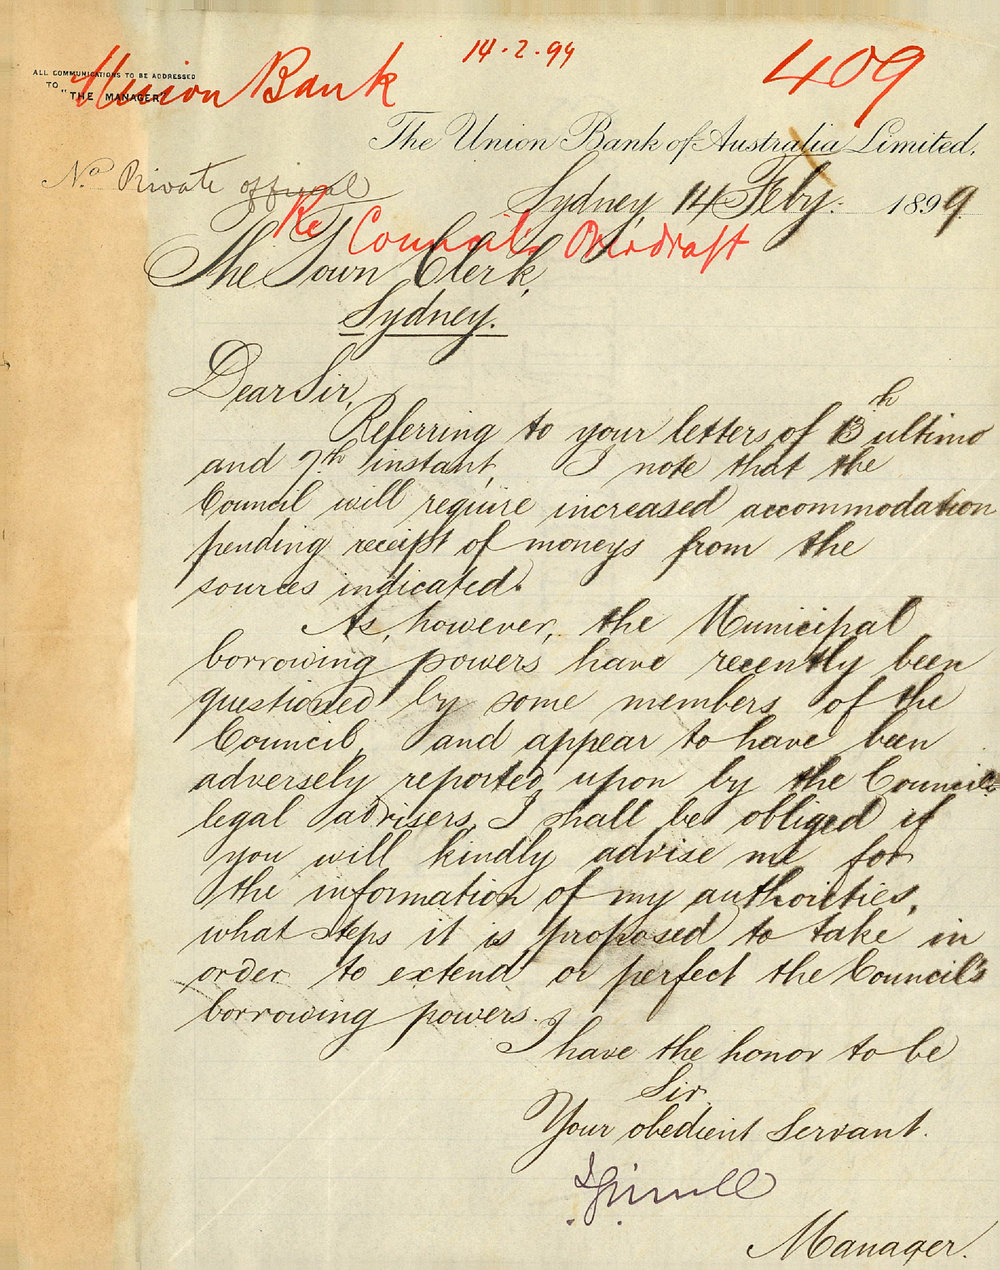 14.2.99
409
Union Bank
ALL COMMUNICATIONS TO BE ADDRESSED
TO "THE MANAGER"
The Union Bank of Australia Limited.
No. Private official
Sydney, 14 Feby. 1899.
Re Council's Overdraft
The Town Clerk,
Sydney.
Dear Sir,
Referring to your letters of 13th ultimo
and 7th instant, I note that the
Council will require increased accommodation
pending receipt of moneys from the
sources indicated.
As, however, the Municipal
borrowing powers have recently been
questioned by some members of the
Council, and appear to have been
adversely reported upon by the Council's
legal advisers, I shall be obliged if
you will kindly advise me for
the information of my authorities,
what steps it is proposed to take in
order to extend or perfect the Council's
borrowing powers.
I have the honor to be
Sir,
Your obedient Servant.
Manager.